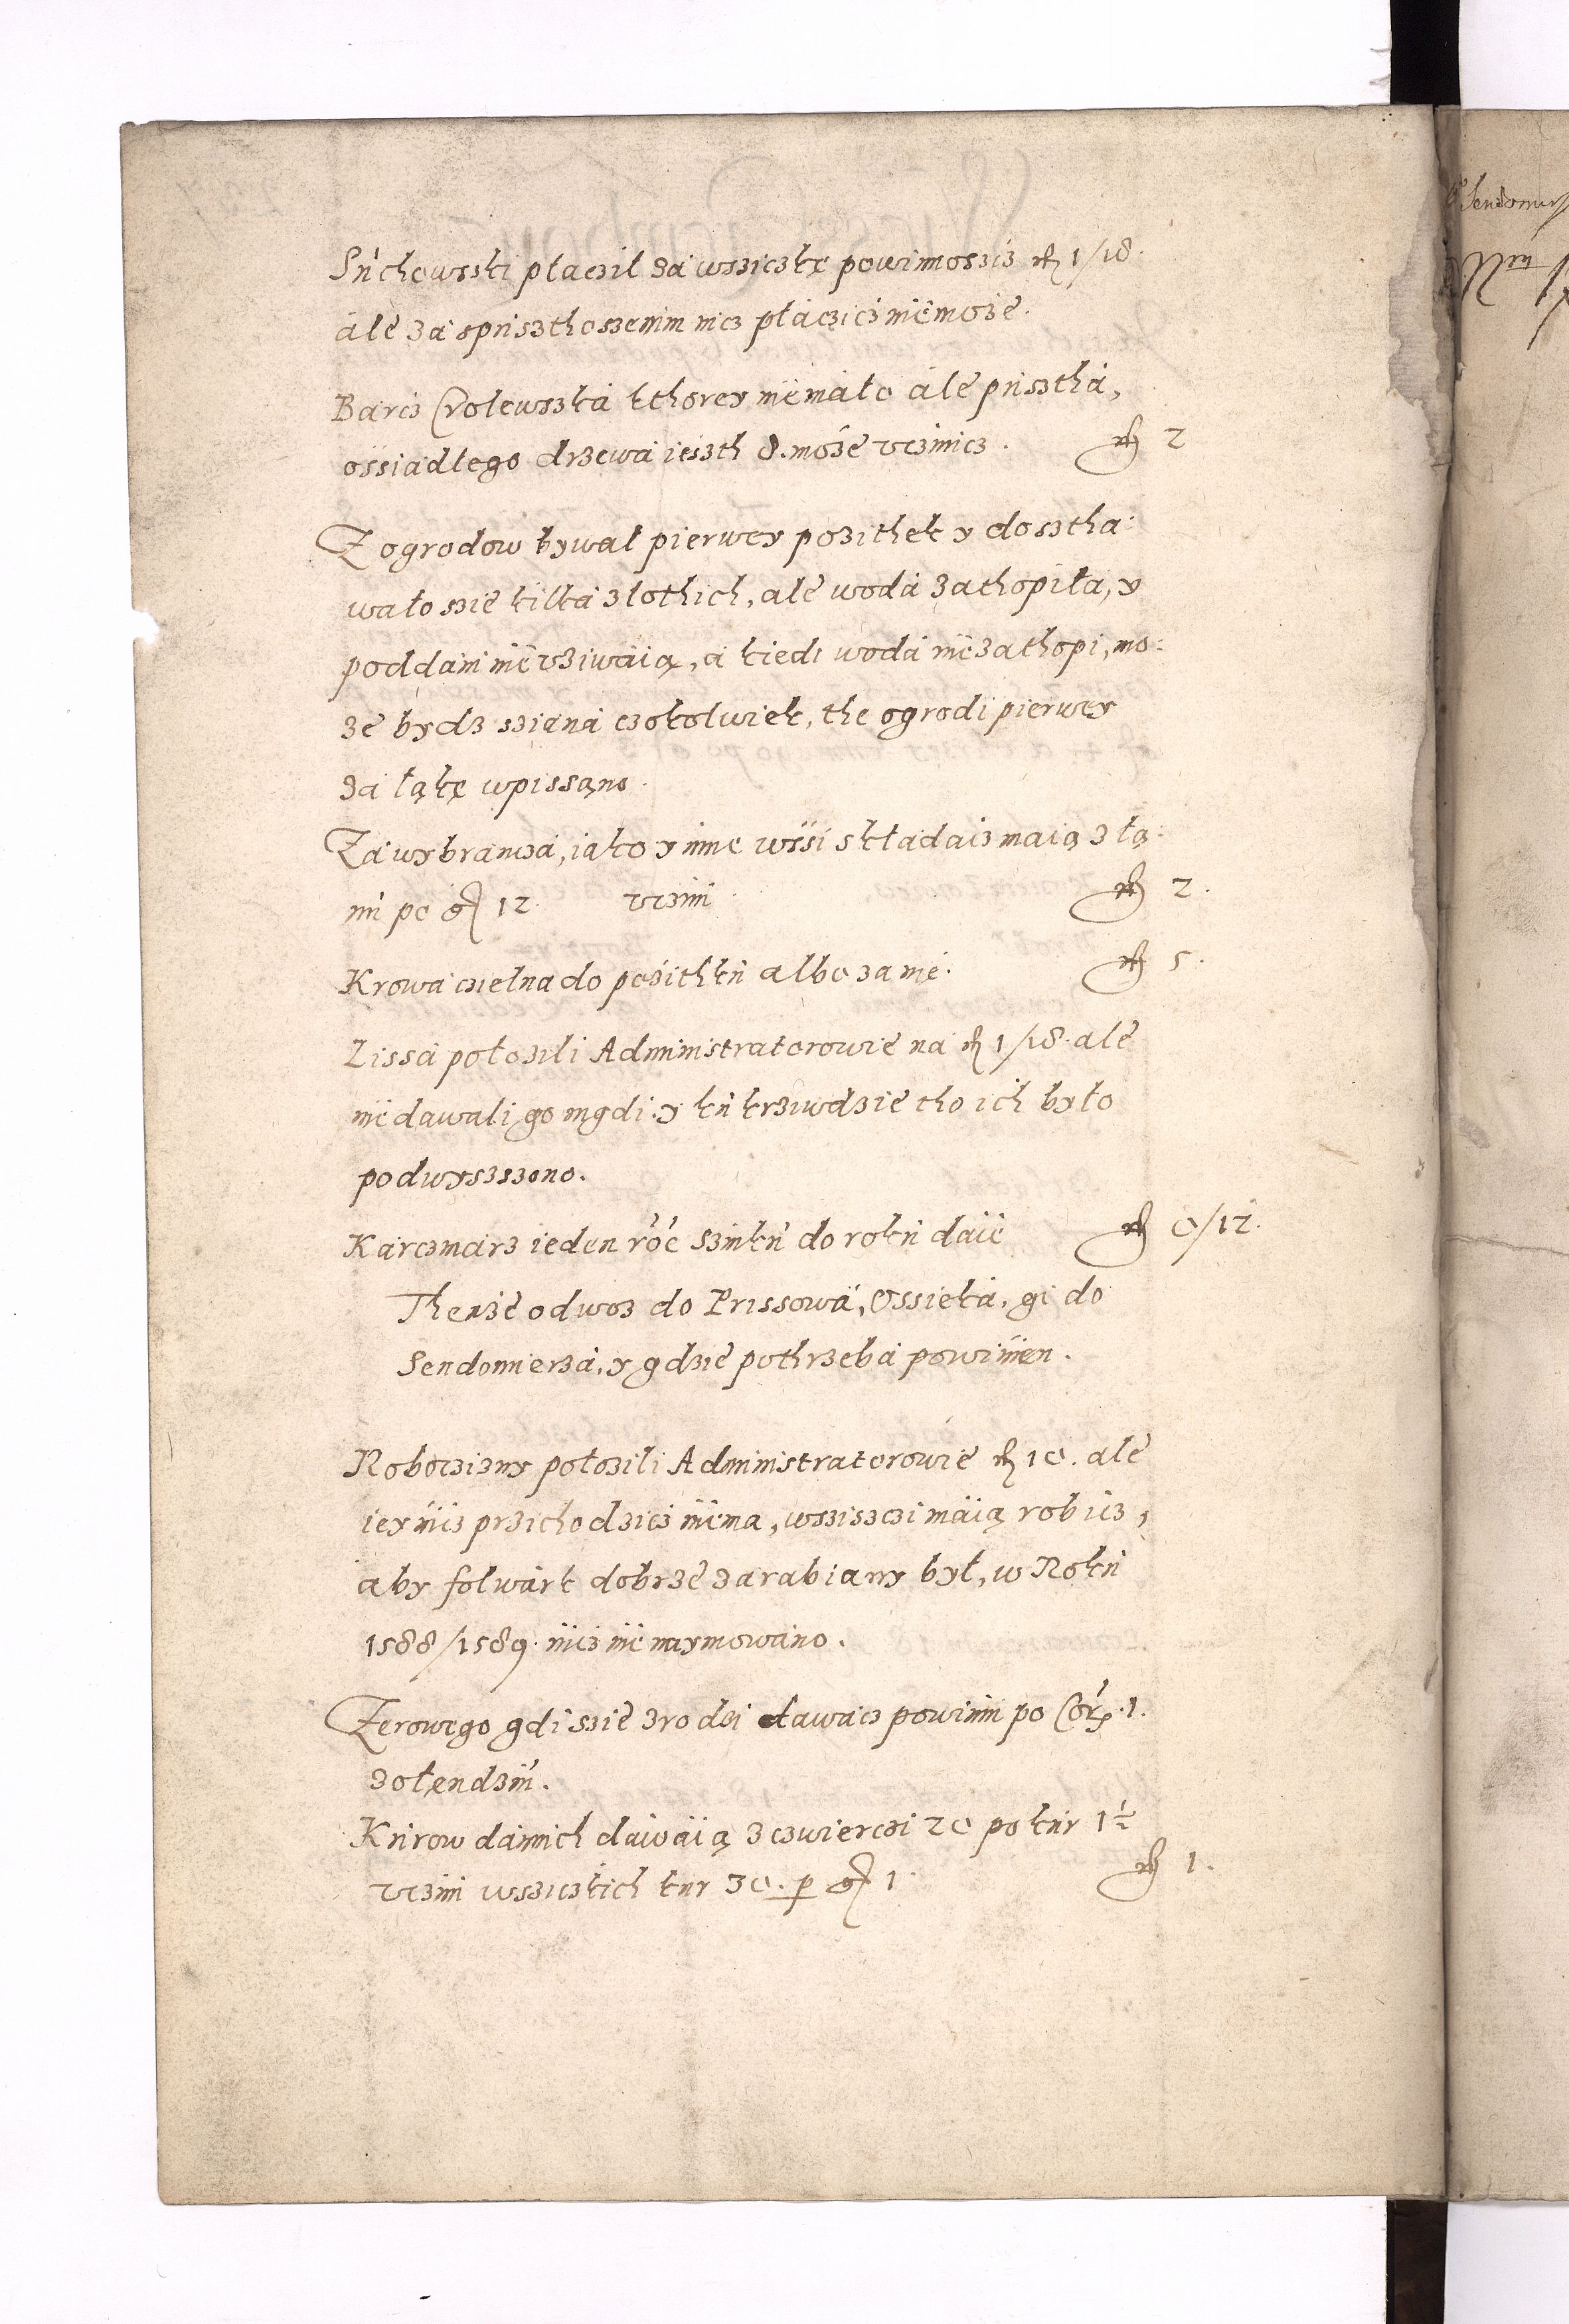 Suchowski płaczil za wsziczkę powinnoszcz fl 1/18.
ále zá sprisztoszenim nicz płáczicz niemoze.
Barcz Crolewszká kthorey niemáło ále prisztha,
ossiadłego drzewá ieszth 8. moze vczinicz. fl 2
Z ogrodow bywał pierwey pozithek y dosztha:
wało szie kilka złothich, ale wodá zathopiła, y
poddáni nie vziwáią, á kiedi wodá niezathopi, mo:
ze bydz sziana czokolwiek, the ogrodi pierwey
zá łąkę wpissąno.
Zá wybranczá, iáko y inne wssi składáicz maią z łą:
ni po gr 12. vczini fl 2.
Krowá czelna do pozithku albo za nię. fl 5.
Lissá połozili Administratorowie na fl 1/18. ale
nie dawali go nigdi. y ku krziwdzie tho ich było
podwyszszono.
Karczmarz ieden roc. szinku do roku dáie fl 0/12.
Thenze odwoz do Prissowá, Ossieká, gi do
Sendomierzá, y gdzie pothrzebá powinien.
Roboczizny połozili Administratorowie fl 10. ale
iey nicz przichodzicz niema, wszisczi máią robicz,
áby folwárk dobrze zarabiany był, w Roku
1588/1589. nicz nie naymowáno.
Zerowego gdi szie zrodzi dawácz powinni po Cor. 1.
zołendziu.
Kurow dannich dáwáią z czwierczi 20 po kur 1½
vczini wsziczkich kur 30. p gr 1. fl 1.
Sendomirs